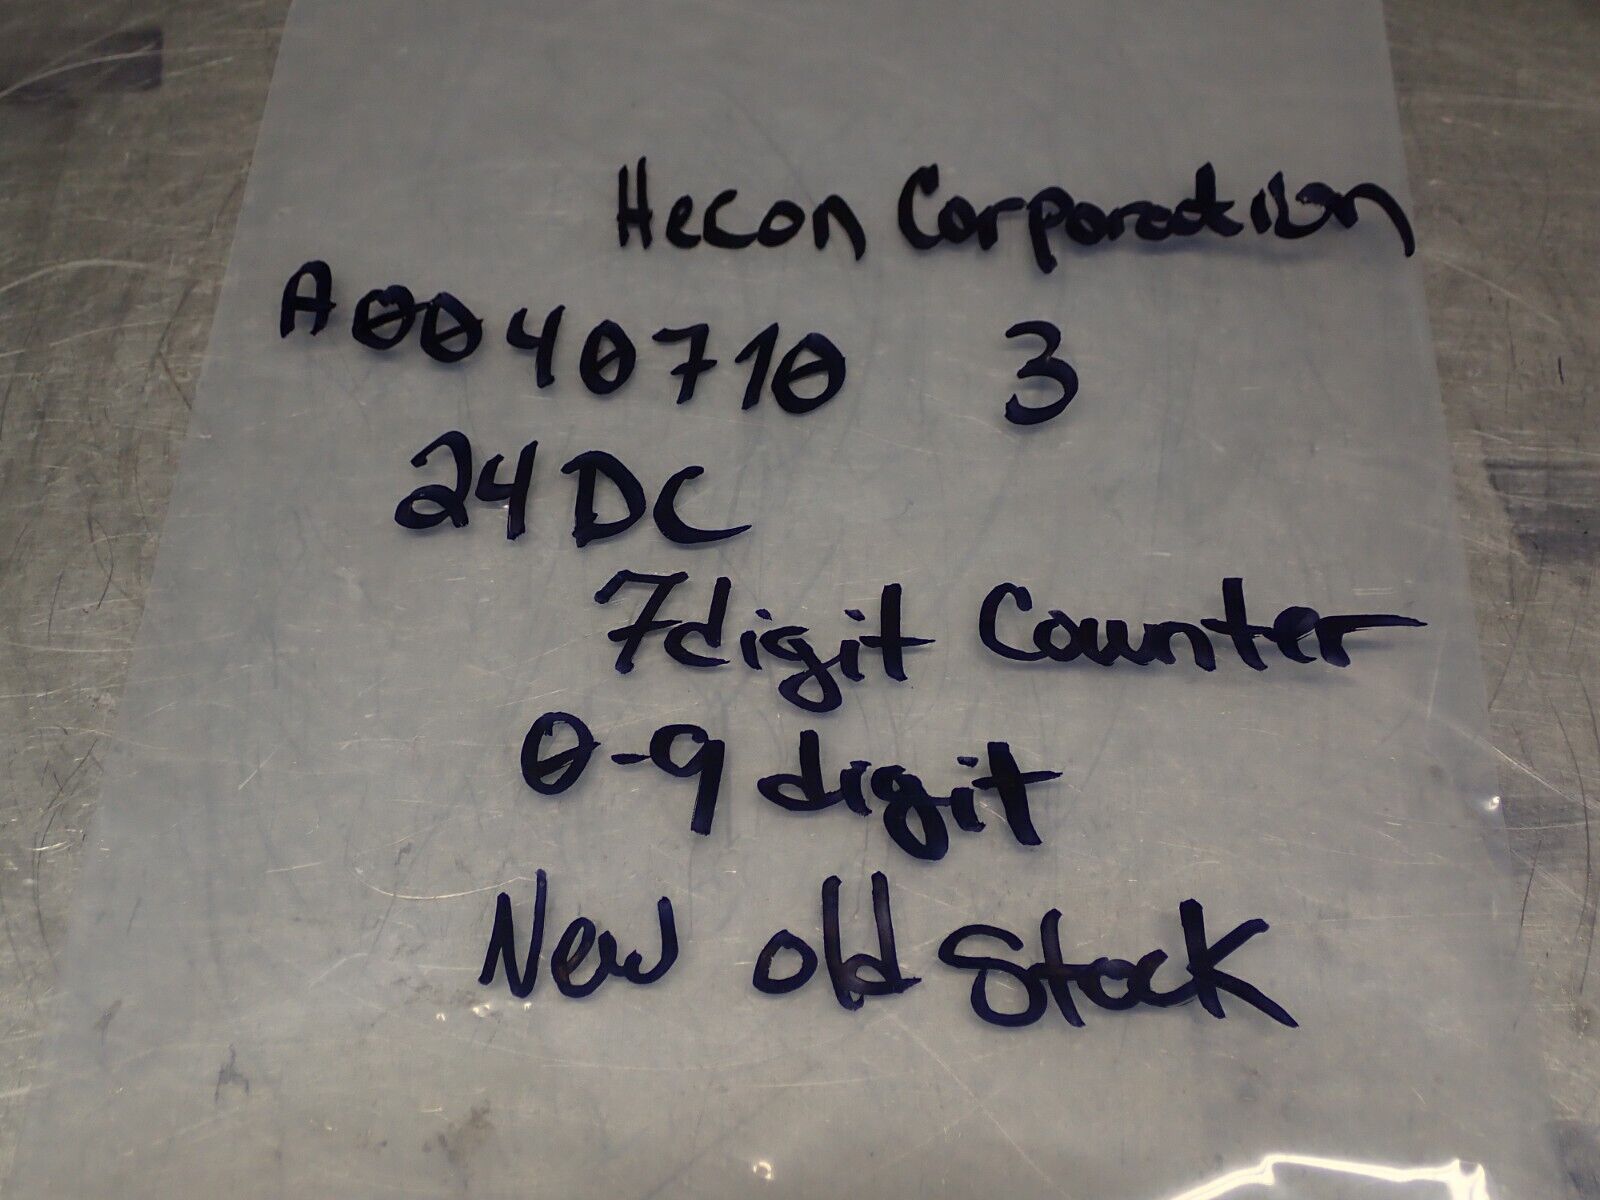 Hecon Corporation
A0040710 3
24 DC
7digit Counter
0-9 digit
New old Stock